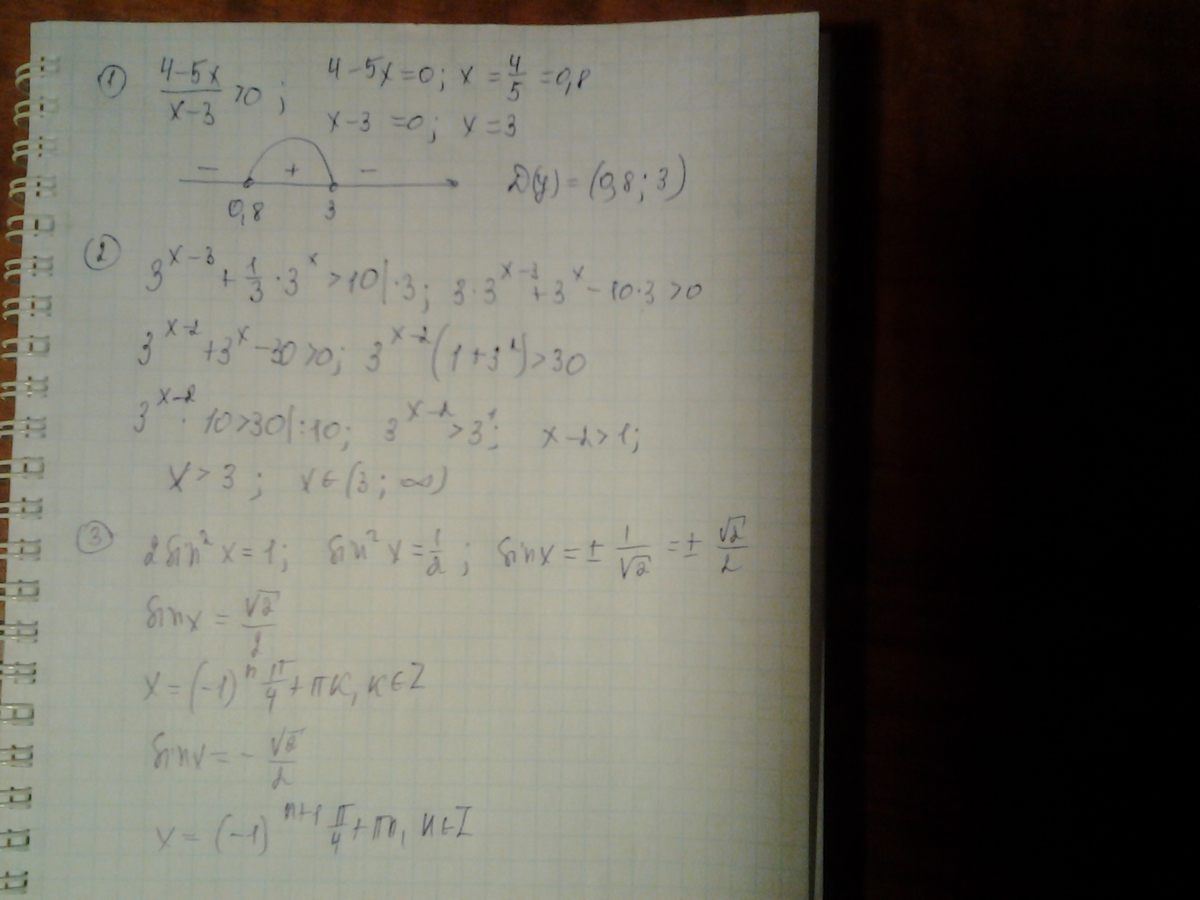 ① (4-5x)/(x-3) >0; 4-5x=0; x=4/5=0,8
x-3=0; x=3
- + -
0,8 3 D(y)=(0,8;3)
② 3^(x-3)+1/3·3^x>10|·3; 3·3^(x-3)+3^x-10·3>0
3^(x-2)+3^x-30>0; 3^(x-2)(1+3²)>30
3^(x-2)·10>30|:10; 3^(x-2)>3¹; x-2>1;
x>3; x∈(3;∞)
③ 2sin²x=1; sin²x=1/2; sinx=±1/√2=±√2/2
sinx=√2/2
x=(-1)^n π/4+πk, k∈Z
sinx=-√2/2
x=(-1)^(n+1) π/4+πn, n∈Z